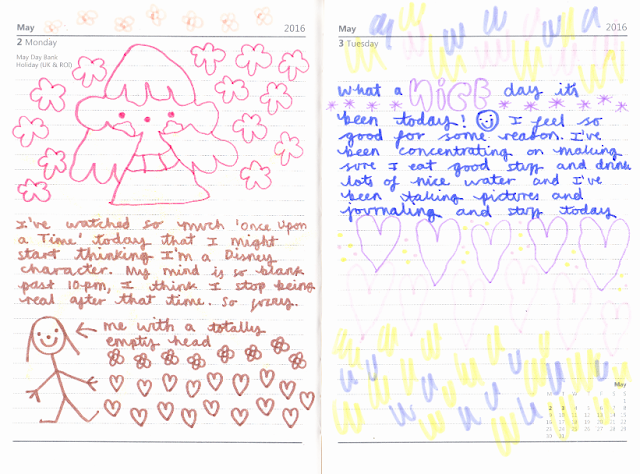 May 2016
2 Monday
May Day Bank
Holiday (UK & ROI)
I've watched so much 'Once Upon
a Time' today that I might
start thinking I'm a Disney
character. My mind is so blank
past 10pm, I think I stop being
real after that time. So fuzzy.
me with a totally
empty head
May 2016
3 Tuesday
What a NICE day it's
been today! I feel so
good for some reason. I've
been concentrating on making
sure I eat good stuff and drink
lots of nice water and I've
been taking pictures and
journaling and stuff today
May